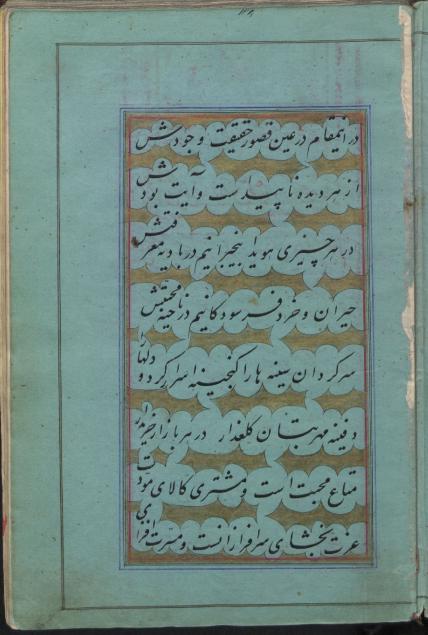 ۱۳۸
در اینمقام در عین قصور حقیقت وجودش
از هر دیده ناپیداست و آیت بودش
در هر چیزی هویدا بیخبرانیم در بادیه معرفتش
حیران و خرد فرسودگانیم در ناحیه محبتش
سرگردان سینه ها را گنجینه اسرار کرد و دلها را
دفینه مهر بتان گلعذار در هر بازار خریدار
متاع محبت است و مشتری کالای مودت
عزت بخشای سرافرازانست و مسرت افزای